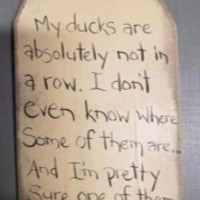 My ducks are
absolutely not in
a row. I don't
even know where
Some of them are..
And I'm pretty
Sure one of them